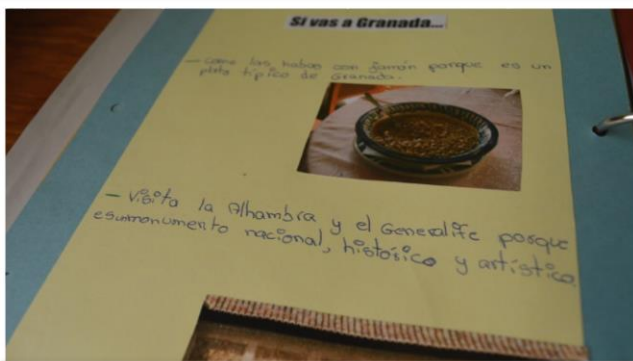 Si vas a Granada...
— Come las habas con jamón porque es un
plato típico de Granada.
— Visita la Alhambra y el Generalife porque
es monumento nacional, histórico y artístico